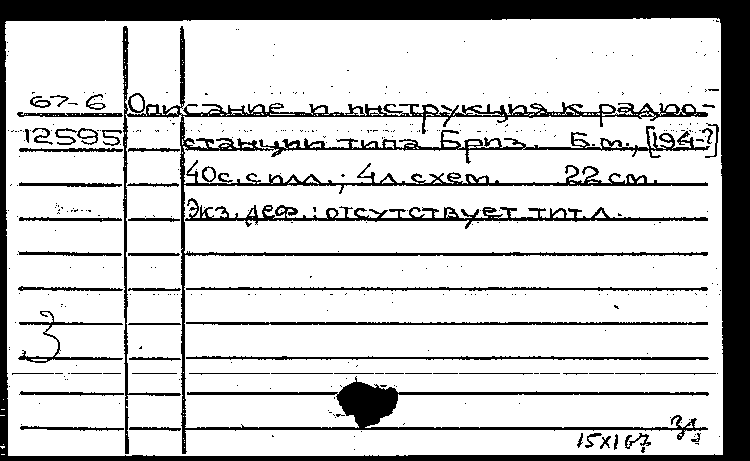 67-6 Описание и инструкция к радио-
12595 станции типа Бриз. Б.м., [194-?]
40с. с илл.; 4л. схем. 22 см.
Экз. деф.: отсутствует тит. л.
3
15 XI 67